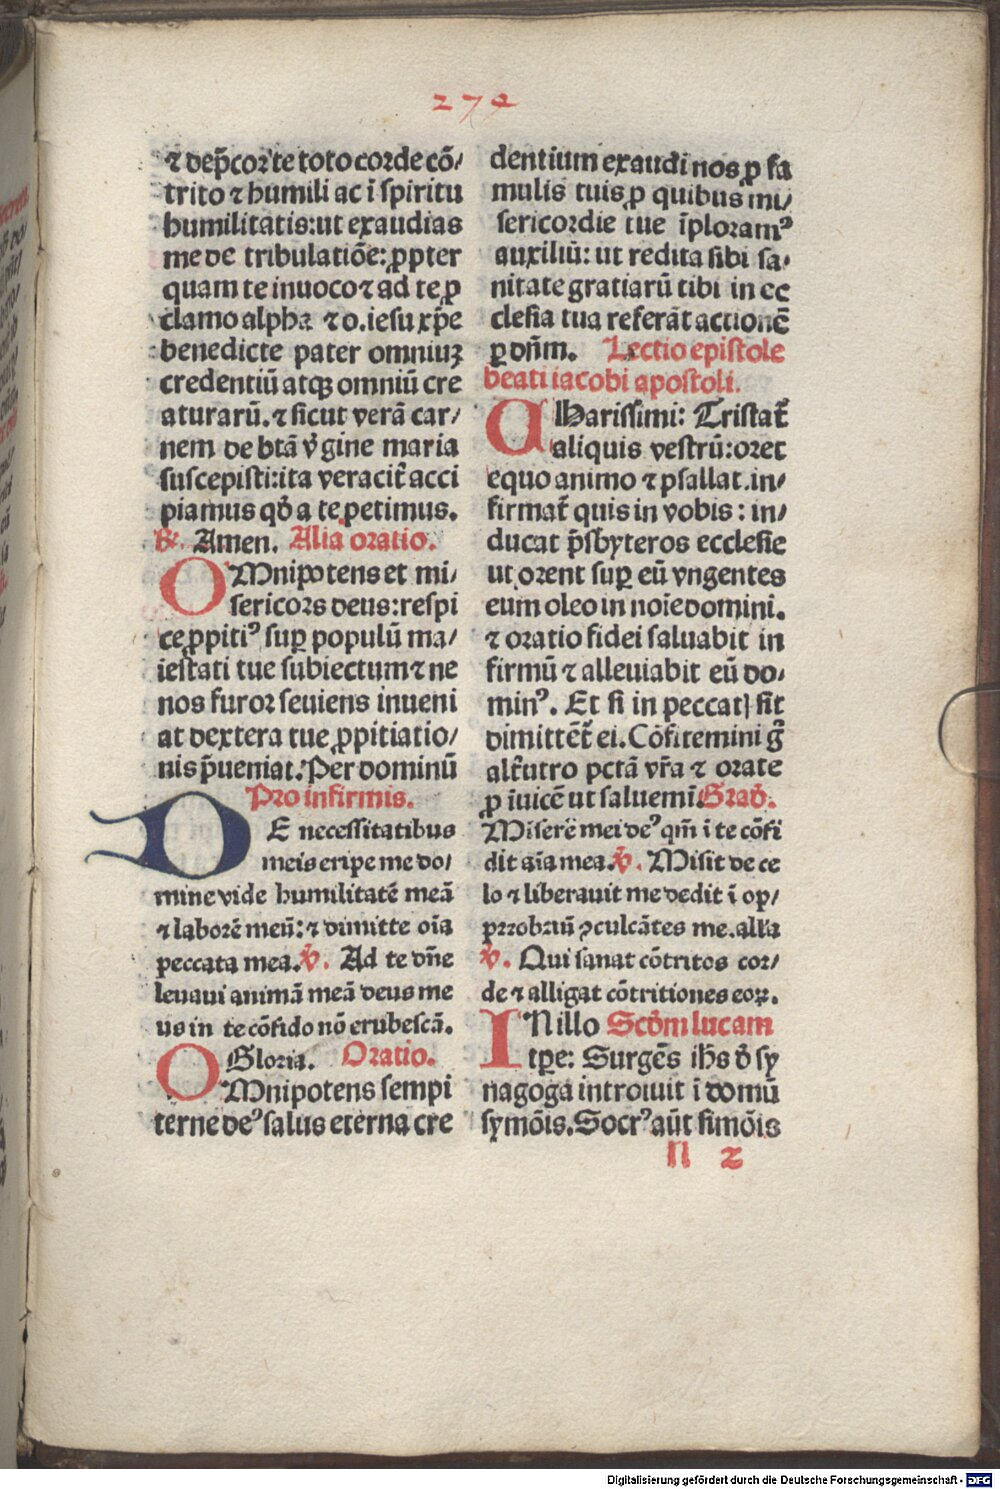 274
⁊ dep̄cor te toto corde cō/
trito ⁊ humili ac ī spiritu
humilitatis:ut exaudias
me de tribulatiōe:ꝓpter
quam te inuoco ⁊ ad te ꝓ
clamo alpha ⁊ o.iesu xp̄e
benedicte pater omniuꝫ
credentiū atqꝫ omniū cre
aturarū.⁊ sicut verā car/
nem de btā v̄gine maria
suscepisti:ita veracit̄ acci
piamus qd̄ a te petimus.
℟. Amen. Alia oratio.
OMnipotens et mi/
sericors deus:respi
ce ꝓpitiꝰ suꝑ populū ma/
iestati tue subiectum ⁊ ne
nos furor seuiens inueni
at dextera tue ꝓpitiatio/
nis p̄ueniat.Per dominū
Pro infirmis.
DE necessitatibus
meis eripe me do/
mine vide humilitatē meā
⁊ laborē meū:⁊ dimitte oīa
peccata mea.℣. Ad te dn̄e
leuaui animā meā deus me
us in te cōfido nō erubescā.
Gloria. Oratio.
OMnipotens sempi
terne deꝰ salus eterna cre
dentium exaudi nos ꝓ fa
mulis tuis ꝓ quibus mi/
sericordie tue īploramꝰ
auxiliū: ut redita sibi sa/
nitate gratiarū tibi in ec
clesia tua referāt actionē
ꝑ dn̄m. Lectio epistole
beati iacobi apostoli.
CHarissimi: Tristat̄
aliquis vestrū:oret
equo animo ⁊ psallat.in/
firmat̄ quis in vobis: in/
ducat p̄sbyteros ecclesie
ut orent suꝑ eū vngentes
eum oleo in noīe domini.
⁊ oratio fidei saluabit in
firmū ⁊ alleuiabit eū do/
minꝰ. Et si in peccatꝭ sit
dimittēt̄ ei. Cōfitemini ḡ
alt̄utro pctā vr̄a ⁊ orate
ꝓ īuicē ut saluemī. Grad̄.
Miserē mei deꝰ qm̄ ī te cōfi
dit aīa mea.℣. Misit de ce
lo ⁊ liberauit me dedit ī op/
prrobriū ꝯculcātes me.alla
℣. Qui sanat cōtritos cor/
de ⁊ alligat cōtritiones eoꝝ.
IN illo Scd̄m lucam
tꝑe: Surgēs ih̄s d̄ sy
nagoga introiuit ī domū
symōis.Socrꝰ aūt simōis
n 2
Digitalisierung gefördert durch die Deutsche Forschungsgemeinschaft - DFG